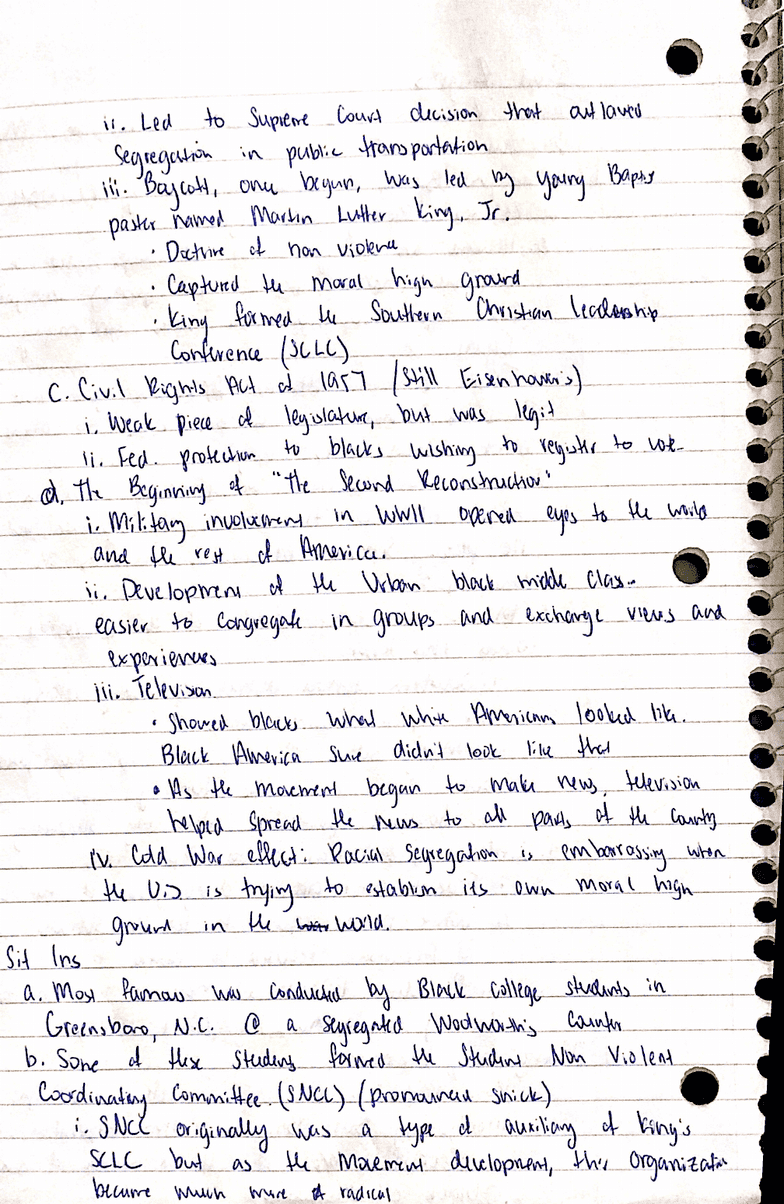 ii. Led to Supreme Court decision that outlawed
Segregation in public transportation
iii. Boycott, once begun, was led by young Baptist
pastor named Martin Lutter King, Jr.
· Doctrine of non violence
· Captured the moral high ground
· King formed the Southern Christian leadership
Conference (SCLC)
C. Civil Rights Act of 1957 (Still Eisenhower's)
i. Weak piece of legislature, but was legit
ii. Fed. protection to blacks wishing to register to vote
d. The Beginning of "The Second Reconstruction"
i. Military involvement in WWII opened eyes to the world
and the rest of America.
ii. Development of the Urban black middle Class-
easier to Congregate in groups and exchange views and
experiences
iii. Televison
· Showed blacks what white Americans looked like.
Black America sure didn't look like that
• As the movement began to make news, television
helped spread the news to all parts of the County
iv. Cold War effect: Racial Segregation is embarrossing when
the U.S is trying to establish its own moral high
ground in the war world.
Sit Ins
a. Most famous was conducted by Black College students in
Greensboro, N.C. @ a segregated Woolworth's Counter
b. Some of these students formed the Student Non Violent
Coordinating Committee. (SNCC) (pronounced snick)
i. SNCC originally was a type of auxiliary of King's
SCLC but as the Movement development, this Organization
became much more radical